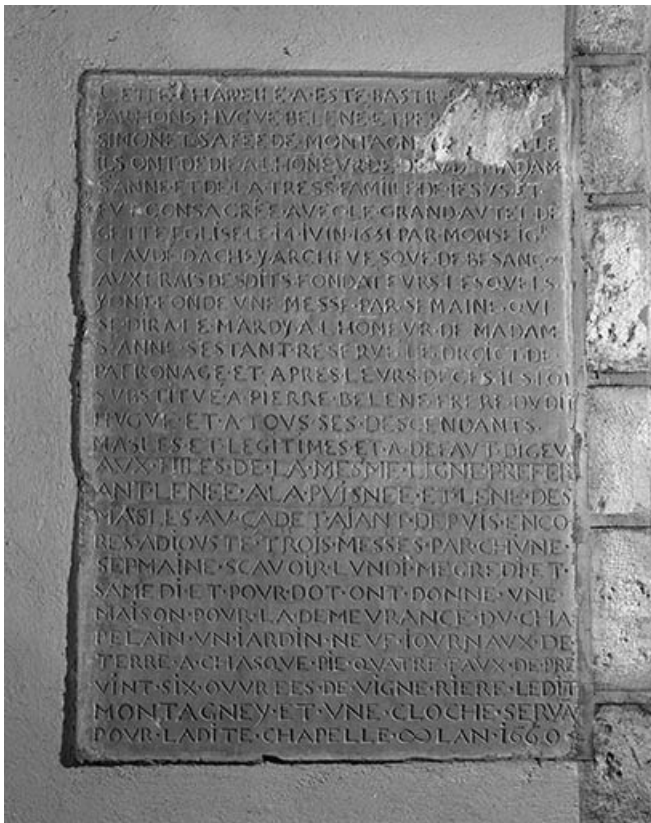 CETTE·CHAPELLE·A·ESTE·BASTI
PAR·HONS·HVGVE·BELENE·ET·PE
SIMONET·SA·FEE·DE·MONTAGNE
ILS·ONT·DEDIE·A·LHONEVR·DE·MADAM
S·ANNE·ET·DE·LA·TRESS·FAMILLE·DE·IESVS·ET
FVT·CONSACRÉE·AVEC·LE·GRAND·AVTEL·DE
CETTE·EGLISE·LE·14·IVIN·1651·PAR·MONSEIGR
CLAVDE·DACHEY·ARCHEVESQVE·DE·BESANÇON
AVX·FRAIS·DESDITS·FONDATEVRS·LESQVELS
Y·ONT·FONDE·VNE·MESSE·PAR·SEMAINE·QVI
SE·DIRA·LE·MARDY·A·LHONEVR·DE·MADAM
S·ANNE·SESTANT·RESERVE·LE·DROICT·DE
PATRONAGE·ET·APRES·LEVRS·DECES·ILS·LOI
SVBSTITVE·A·PIERRE·BELENE·FRERE·DVDIT
HVGVE·ET·A·TOVS·SES·DESCENDANTS·
MASLES·ET·LEGITIMES·ET·A·DEFAVT·DIGEV
AVX·FILES·DE·LA·MESME·LIGNE·PREFER
ANT·LENEE·A·LA·PVISNEE·ET·LENE·DES
MASLES·AV·CADET·AIANT·DEPVIS·ENCO
RES·ADIOVSTE·TROIS·MESSES·PAR·CHVNE·
SEPMAINE·SCAVOIR·LVNDI·MECREDI·ET·
SAMEDI·ET·POVR·DOT·ONT·DONNE·VNE
MAISON·POVR·LA·DEMEVRANCE·DV·CHA
PELAIN·VN·IARDIN·NEVF·IOVRNAVX·DE
TERRE·A·CHASQVE·PIE·QVATRE·FAVX·DE·PRE
VINT·SIX·OVVREES·DE·VIGNE·RIERE·LEDIT
MONTAGNEY·ET·VNE·CLOCHE·SERVA
POVR·LADITE·CHAPELLE·LAN·1660·